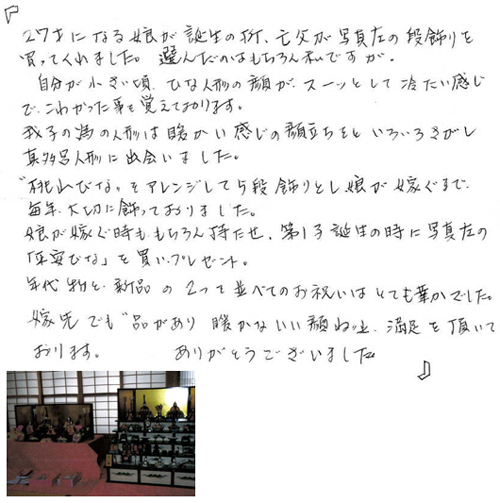 『
27才になる娘が誕生の折、亡父が写真左の段飾りを
買ってくれました。選んだのはもちろん私ですが。
自分が小さい頃、ひな人形の顔が、スーッとして冷たい感じ
で、こわかった事を覚えております。
我子の為の人形は暖かい感じの顔立ちをと いろいろさがし
真多呂人形に出会いました。
"桃山びな"をアレンジして5段飾りとし娘が嫁ぐまで、
毎年、大切に飾っておりました。
娘が嫁ぐ時ももちろん持たせ、第1子誕生の時に写真右の
「平安びな」を買い、プレゼント。
年代物と、新品の2つて並べてのお祝いはとても華かでした。
嫁先でも"品があり 暖かないい顔ねッと、満足を頂いて
おります。 ありがとうございました
』